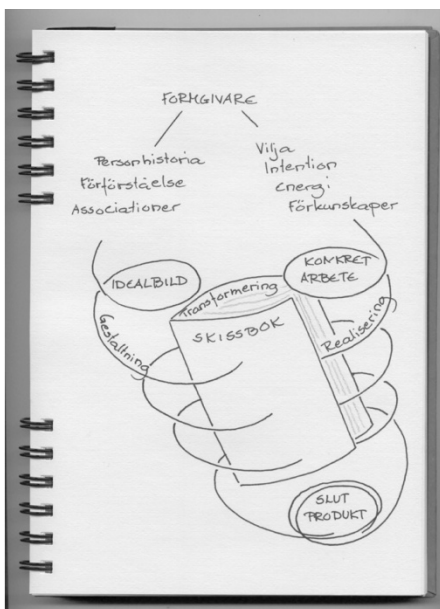 FORMGIVARE
Personhistoria
Förförståelse
Associationer
Vilja
Intention
Energi
Förkunskaper
IDEALBILD
Transformering
KONKRET
ARBETE
Gestaltning
SKISSBOK
Realisering
SLUT
PRODUKT